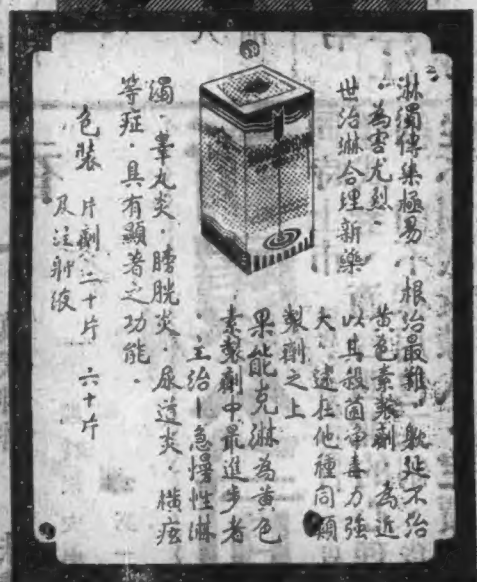 淋濁傳染極易．根治最難．躭延不治
．為害尤烈．黃色素製劑．為近
世治淋合理新藥．以其殺菌淨毒力強
大．遠在他種同類
製劑之上
果能克淋為黃色
素製劑中最進步者
．主治—急慢性淋
濁．睾丸炎．膀胱炎．尿道炎．橫痃
等症．具有顯著之功能．
包裝 片劑 二十片 六十片
及注射液